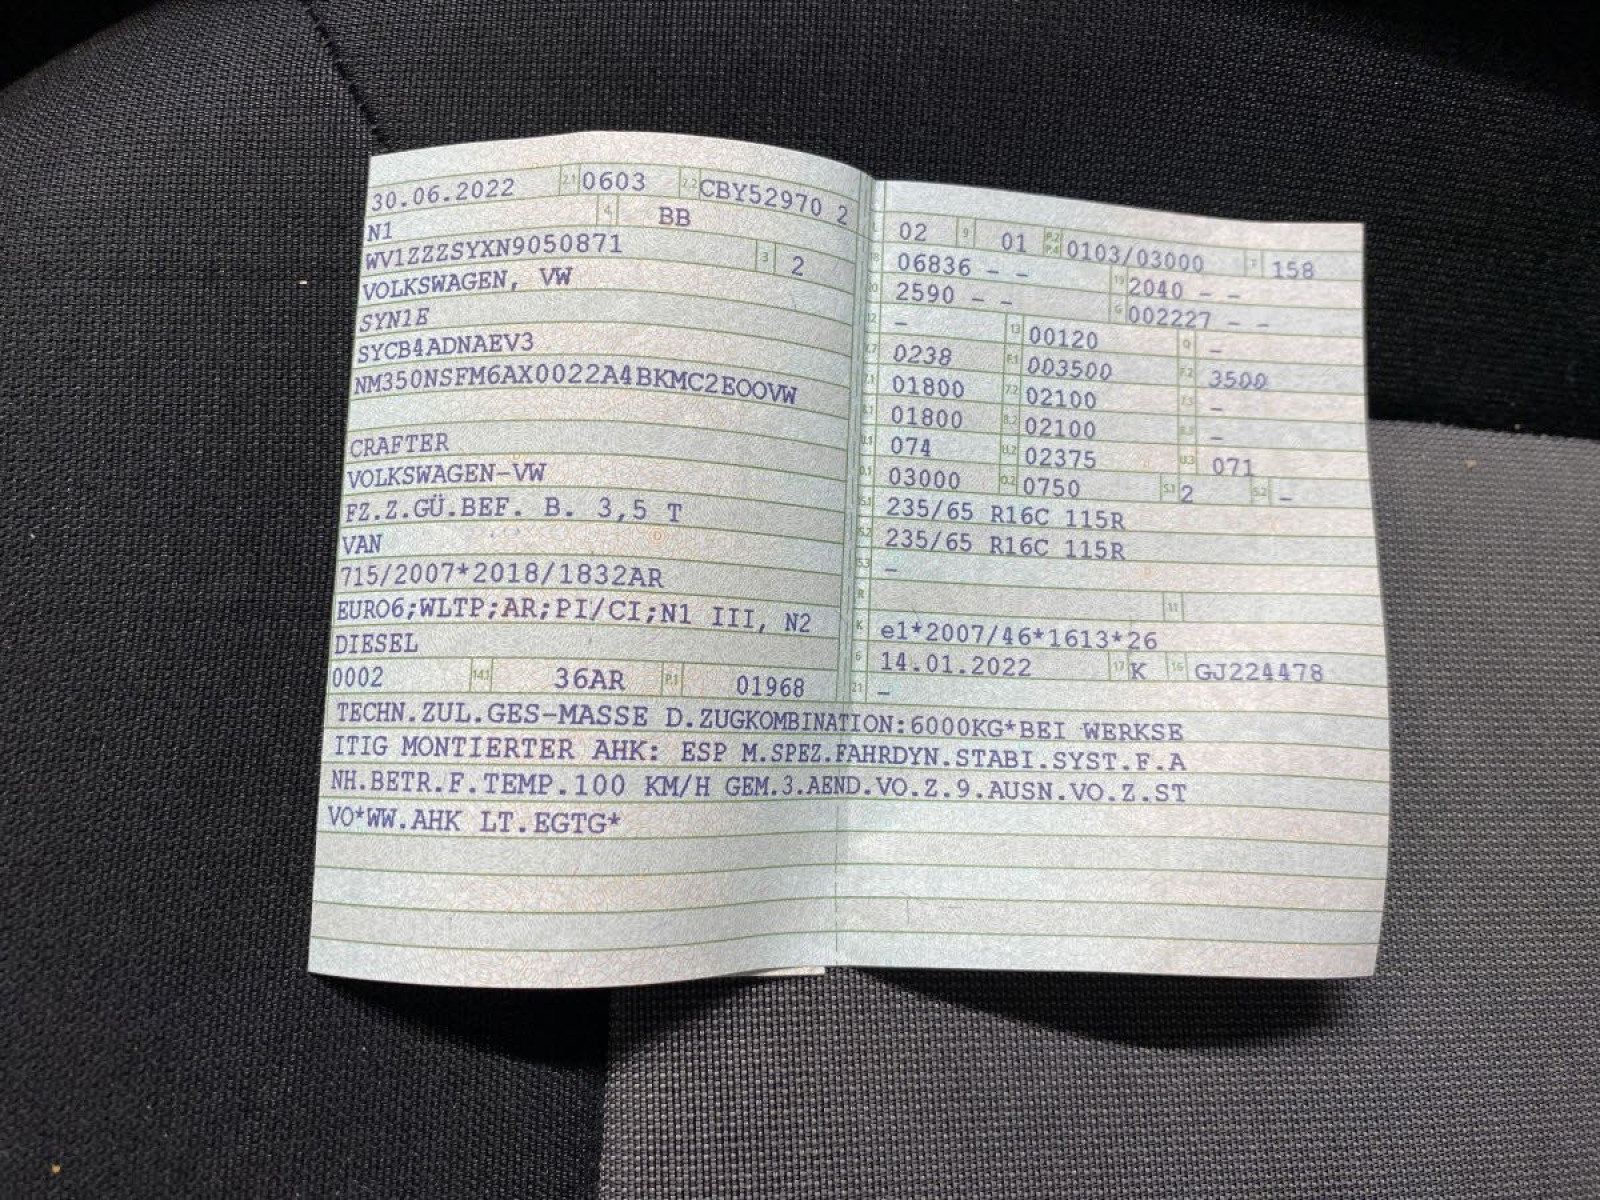 30.06.2022 2.1 0603 2.2 CBY52970 2
N1 4 BB
WV1ZZZSYXN9050871 3 2
VOLKSWAGEN, VW
SYN1E
SYCB4ADNAEV3
NM350NSFM6AX0022A4BKMC2EOOVW
CRAFTER
VOLKSWAGEN-VW
FZ.Z.GÜ.BEF. B. 3,5 T
VAN
715/2007*2018/1832AR
EURO6;WLTP;AR;PI/CI;N1 III, N2
DIESEL
0002 14.1 36AR P.1 01968
L 02 9 01 P.2 P.4 0103/03000 T 158
18 06836 - - 19 2040 - -
20 2590 - - G 002227 - -
12 - 13 00120 Q -
V.7 0238 F.1 003500 F.2 3500
7.1 01800 7.2 02100 7.3 -
8.1 01800 8.2 02100 8.3 -
U.1 074 U.2 02375 U.3 071
O.1 03000 O.2 0750 S.1 2 S.2 -
15.1 235/65 R16C 115R
15.2 235/65 R16C 115R
15.3 -
R 11
K e1*2007/46*1613*26
6 14.01.2022 17 K 16 GJ224478
21 -
TECHN.ZUL.GES-MASSE D.ZUGKOMBINATION:6000KG*BEI WERKSE
ITIG MONTIERTER AHK: ESP M.SPEZ.FAHRDYN.STABI.SYST.F.A
NH.BETR.F.TEMP.100 KM/H GEM.3.AEND.VO.Z.9.AUSN.VO.Z.ST
VO*WW.AHK LT.EGTG*